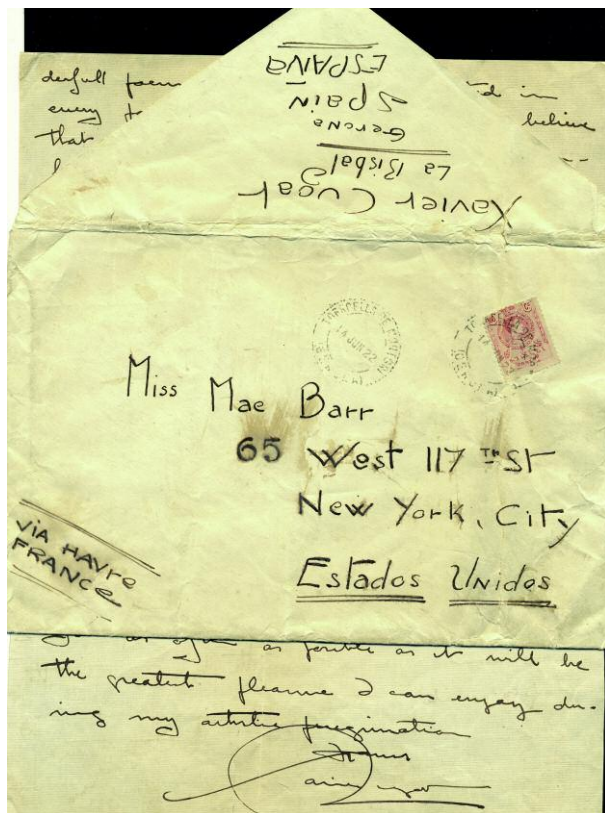 derfull
in
every
believe
that
Xavier Cugat
La Bisbal
Gerona
Spain
ESPAÑA
14 JUN 22
Miss Mae Barr
65 West 117 TH St
New York, City
Estados Unidos
VIA HAVRE
FRANCE
as posible as it will be
the greatest pleasure I can enjoy du-
ring my artistic peregrination